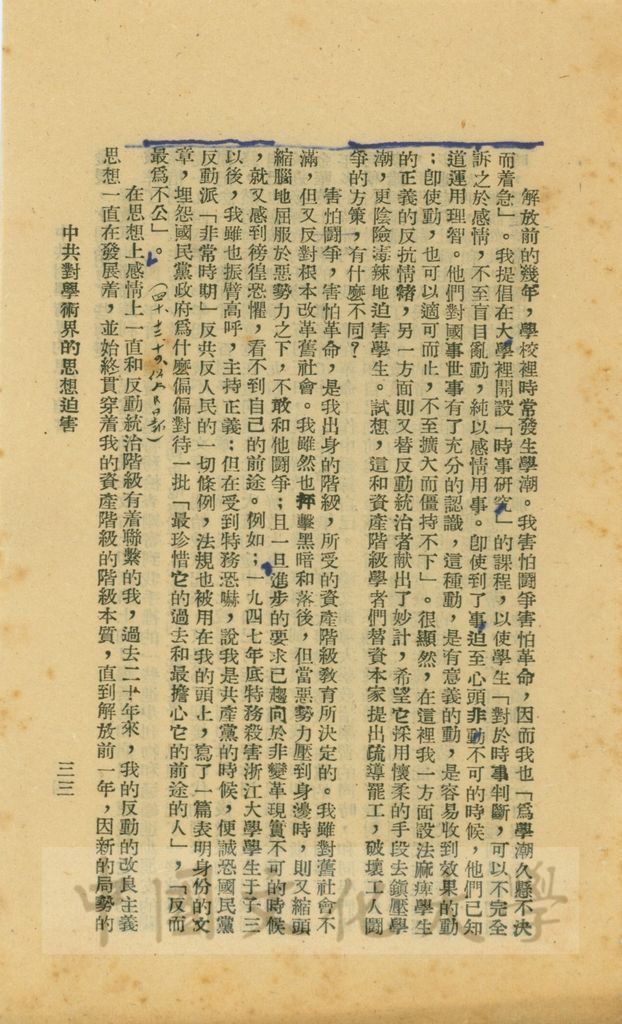 解放前的幾年，學校裡時常發生學潮。我害怕鬪爭害怕革命，因而我也「爲學潮久懸不決
而着急」。我提倡在大學裡開設「時事研究」的課程，以使學生「對於時事判斷，可以不完全
訴之於感情，不至盲目亂動，純以感情用事。卽使到了事迫至心頭非動不可的時候，他們已知
道運用理智。他們對國事世事有了充分的認識，這種動，是有意義的動，是容易收到效果的動
；卽使動，也可以適可而止，不至擴大而僵持不下」。很顯然，在這裡我一方面設法麻痺學生
的正義的反抗情緒，另一方面則又替反動統治者献出了妙計，希望它採用懷柔的手段去鎭壓學
潮，更陰險毒辣地迫害學生。試想，這和資產階級學者們替資本家提出疏導罷工，破壞工人鬪
爭的方策，有什麼不同？
害怕鬪爭，害怕革命，是我出身的階級，所受的資產階級敎育所決定的。我雖對舊社會不
滿，但又反對根本改革舊社會。我雖然也抨擊黑暗和落後，但當惡勢力壓到身邊時，則又縮頭
縮腦地屈服於惡勢力之下，不敢和他鬪爭；且一旦進步的要求已趨向於非變革現實不可的時候
，就又感到徬徨恐懼，看不到自己的前途。例如；一九四七年底特務殺害浙江大學學生于子三
以後，我雖也振臂高呼，主持正義；但在受到特務恐嚇，說我是共產黨的時候，便誠恐國民黨
反動派「非常時期」反共反人民的一切條例，法規也被用在我的頭上，寫了一篇表明身份的文
章，埋怨國民黨政府爲什麼偏偏對待一批「最珍惜它的過去和最擔心它的前途的人」，「反而
最爲不公」。
在思想上感情上一直和反動統治階級有着聯繫的我，過去二十年來，我的反動的改良主義
思想一直在發展着，並始終貫穿着我的資產階級的階級本質，直到解放前一年，因新的局勢的
中共對學術界的思想迫害
三三
中國文化大學